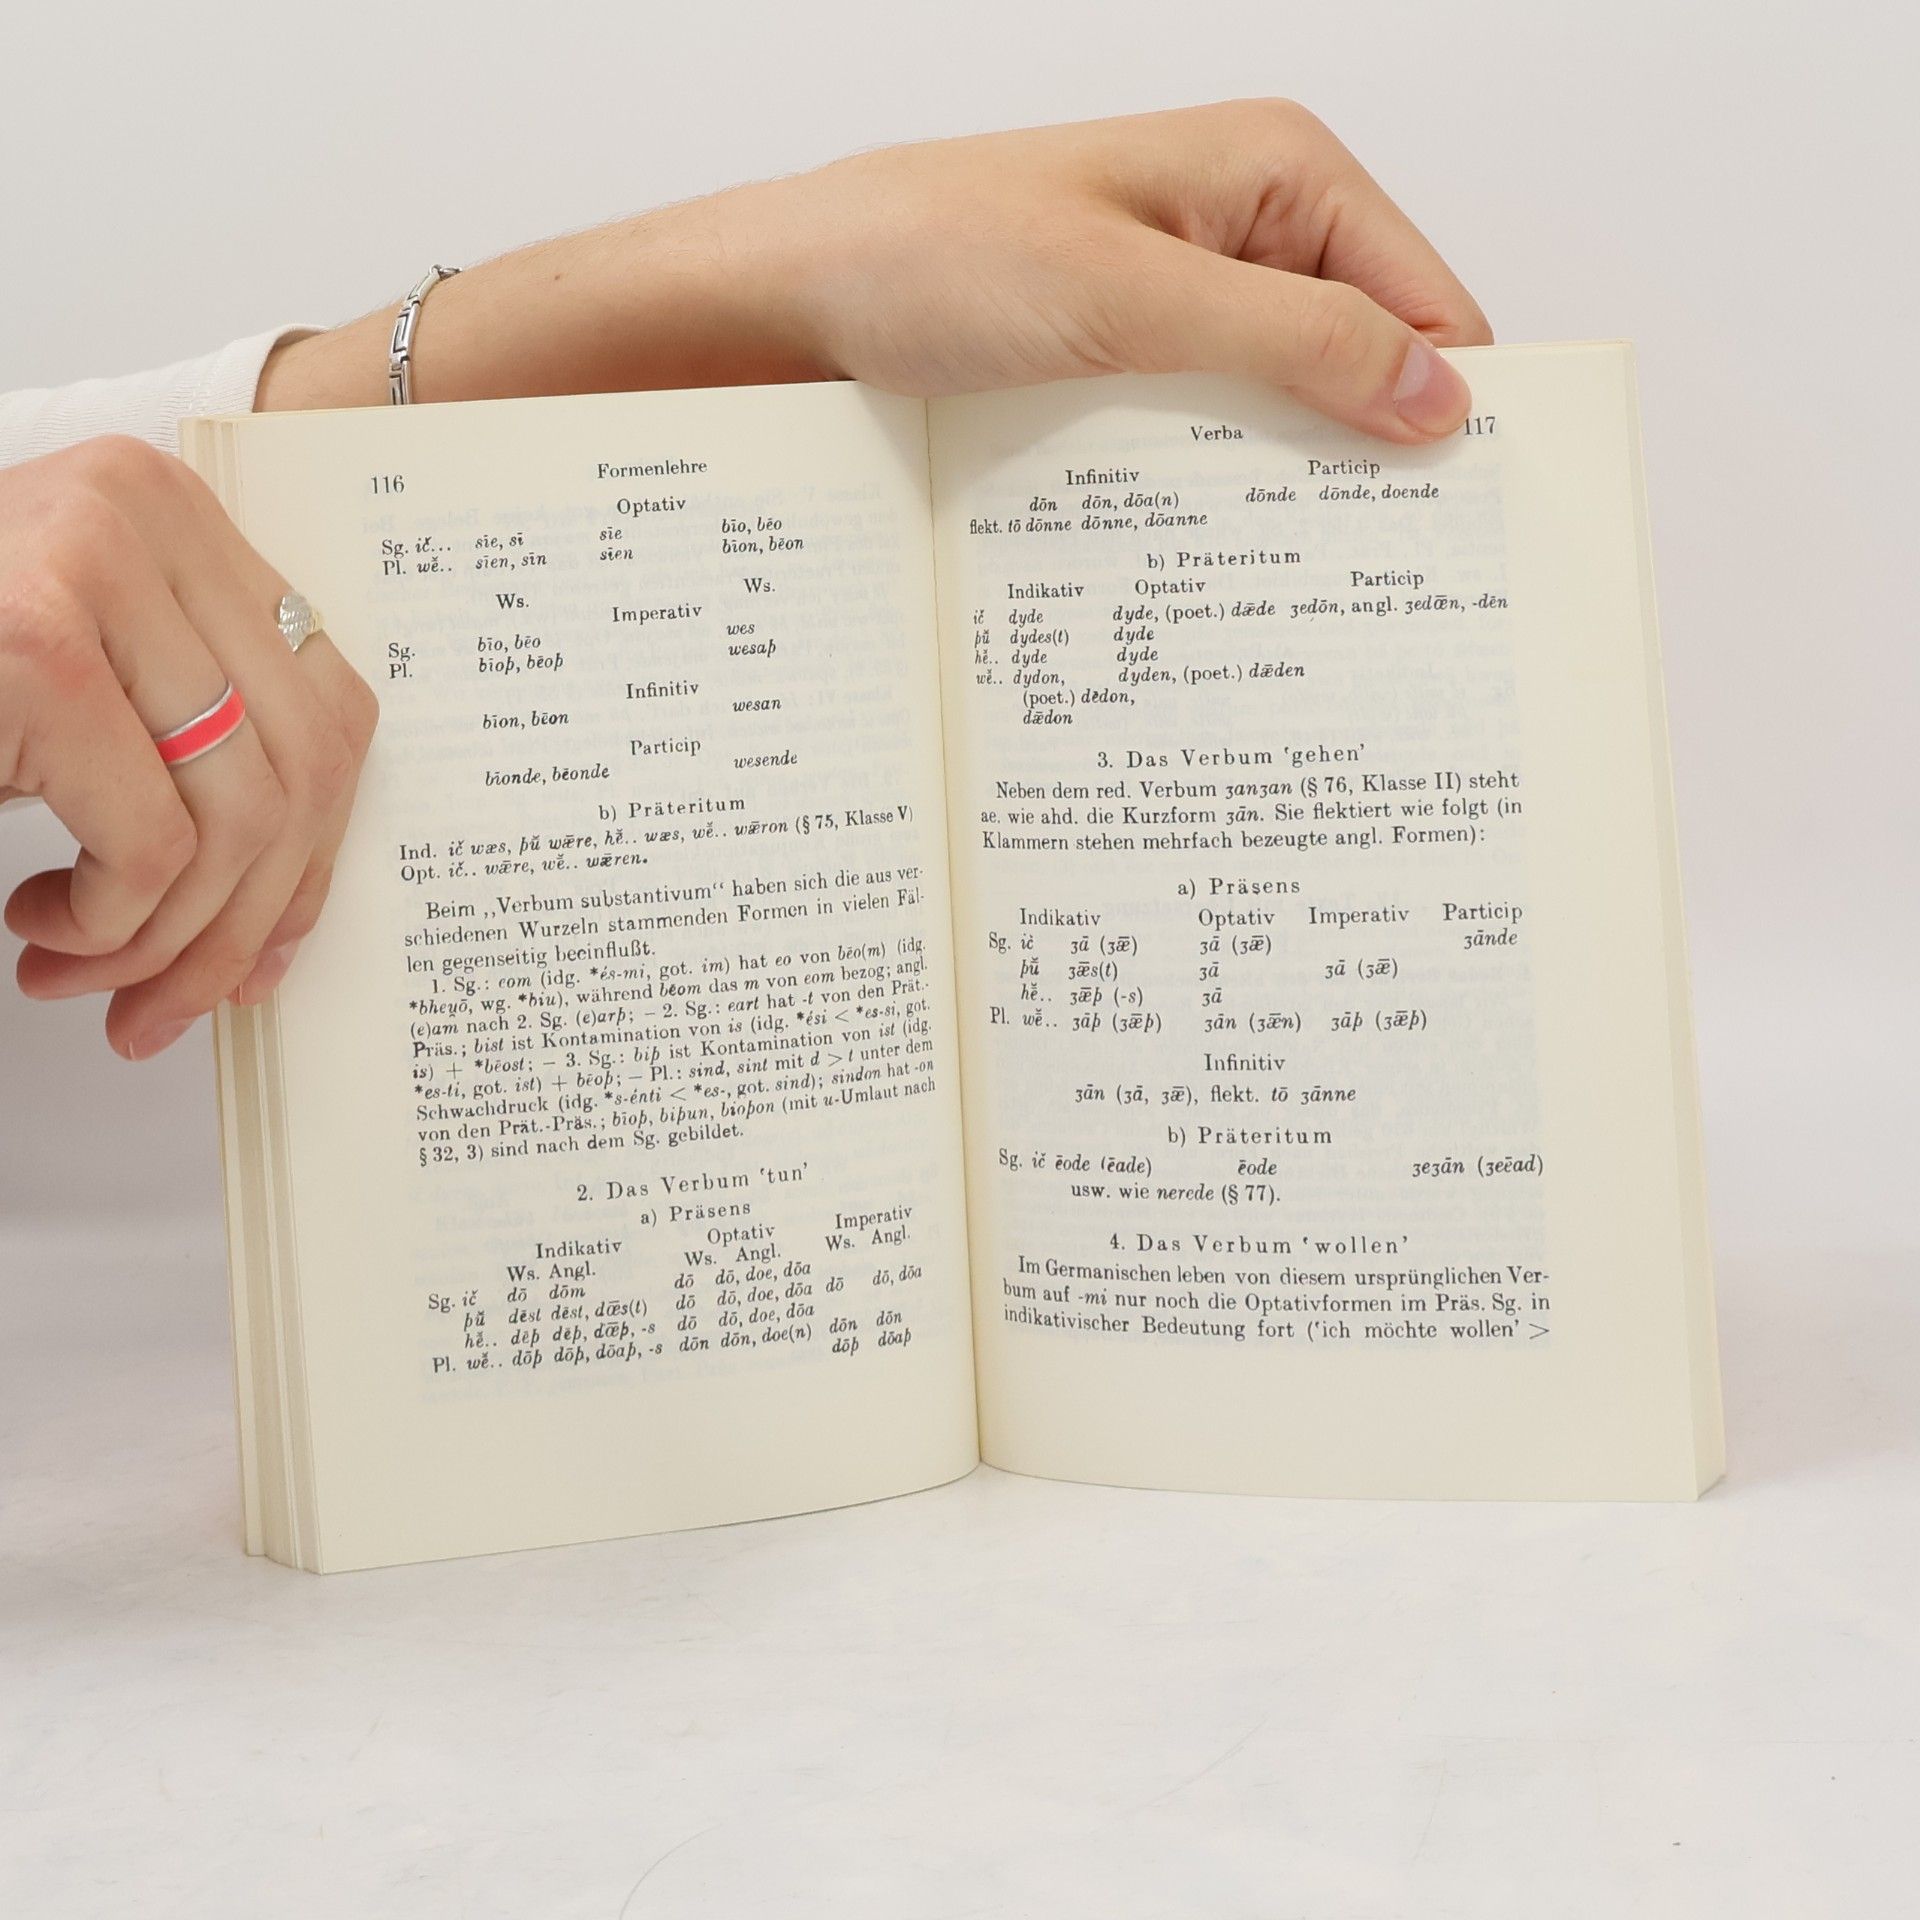 116 Formenlehre
Optativ
Sg. ič... sīe, sī sīe bīo, bēo
Pl. wē̆.. sīen, sīn sīen bīon, bēon
Ws. Ws.
Imperativ
Sg. bīo, bēo wes
Pl. bīoþ, bēoþ wesaþ
Infinitiv
bīon, bēon wesan
Particip
bīonde, bēonde wesende
b) Präteritum
Ind. ič wæs, þū̆ wǣre, hē̆.. wæs, wē̆.. wǣron (§ 75, Klasse V)
Opt. ič.. wǣre, wē̆.. wǣren.
Beim „Verbum substantivum“ haben sich die aus ver-
schiedenen Wurzeln stammenden Formen in vielen Fäl-
len gegenseitig beeinflußt.
1. Sg.: eom (idg. *és-mi, got. im) hat eo von bēo(m) (idg.
*bheu̯ō, wg. *biu), während bēom das m von eom bezog; angl.
(e)am nach 2. Sg. (e)arþ; – 2. Sg.: eart hat -t von den Prät.-
Präs.; bist ist Kontamination von is (idg. *ési < *es-si, got.
is) + *bēost; – 3. Sg.: biþ ist Kontamination von ist (idg.
*es-ti, got. ist) + bēoþ; – Pl.: sind, sint mit d > t unter dem
Schwachdruck (idg. *s-énti < *es-, got. sind); sindon hat -on
von den Prät.-Präs.; bīoþ, biþun, bioþon (mit u-Umlaut nach
§ 32, 3) sind nach dem Sg. gebildet.
2. Das Verbum ‘tun’
a) Präsens
Indikativ Optativ Imperativ
Ws. Angl. Ws. Angl. Ws. Angl.
Sg. ič dō dōm dō dō, doe, dōa
þū̆ dēst dēst, dœ̄s(t) dō dō, doe, dōa dō dō, dōa
hē̆.. dēþ dēþ, dœ̄þ, -s dō dō, doe, dōa
Pl. wē̆.. dōþ dōþ, dōaþ, -s dōn dōn, doe(n) dōn dōn
dōþ dōaþ
Verba 117
Infinitiv Particip
dōn dōn, dōa(n) dōnde dōnde, doende
flekt. tō dōnne dōnne, dōanne
b) Präteritum
Indikativ Optativ Particip
ič dyde dyde, (poet.) dǣde ʒedōn, angl. ʒedœ̄n, -dēn
þū̆ dydes(t) dyde
hē̆.. dyde dyde
wē̆.. dydon, dyden, (poet.) dǣden
(poet.) dēdon,
dǣdon
3. Das Verbum ‘gehen’
Neben dem red. Verbum ʒanʒan (§ 76, Klasse II) steht
ae. wie ahd. die Kurzform ʒān. Sie flektiert wie folgt (in
Klammern stehen mehrfach bezeugte angl. Formen):
a) Präsens
Indikativ Optativ Imperativ Particip
Sg. ič ʒā (ʒǣ) ʒā (ʒǣ) ʒānde
þū̆ ʒǣs(t) ʒā ʒā (ʒǣ)
hē̆.. ʒǣþ (-s) ʒā
Pl. wē̆.. ʒāþ (ʒǣþ) ʒān (ʒǣn) ʒāþ (ʒǣþ)
Infinitiv
ʒān (ʒā, ʒǣ), flekt. tō ʒānne
b) Präteritum
Sg. ič ēode (ēade) ēode ʒeʒān (ʒeēad)
usw. wie nerede (§ 77).
4. Das Verbum ‘wollen’
Im Germanischen leben von diesem ursprünglichen Ver-
bum auf -mi nur noch die Optativformen im Präs. Sg. in
indikativischer Bedeutung fort (‘ich möchte wollen’ >